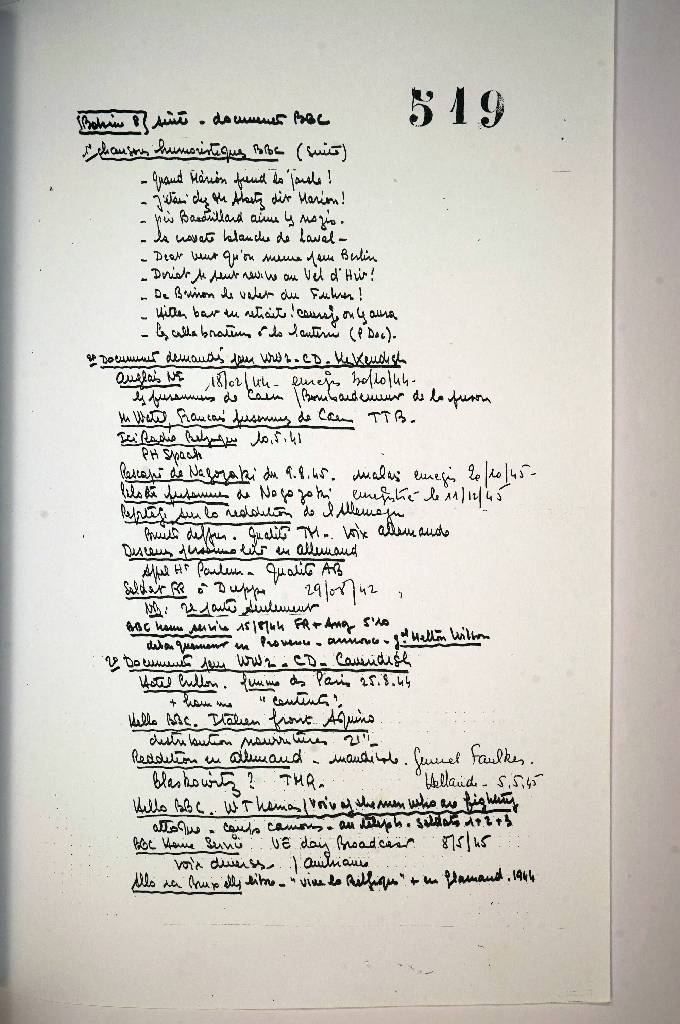 519
Bobine 8 suite - documents BBC
1° chansons humoristiques BBC (suite)
- Quand Marion prend la parole !
- J'étais chez Mr Abetz dit Marion !
- Baudrillard aime les nazis.
- la cravate blanche de Laval -
- Deat veut qu'on meure pour Berlin
- Doriot se peut revivre au Vel d'Hiv !
- De Brinon le valet du Fuhrer !
- Hitler bat en retraite ! courage on les aura
- les collaborateurs à la lanterne (P Dac).
2° Documents demandés pour WW2 - CD - Mc Kendish
Anglais N° 18/02/44 - enregis 30/10/44 -
les prisonniers de Caen / Bombardement de la prison
Mr Watel, Francais prisonnier de Caen TTB.
Ici Radio Belgique 10.5.41
PH Spaak
Rescapé de Nagazaki du 9.8.45. malais enregis 20/10/45 -
Pilote prisonnier de Nagazaki enregistré le 11/12/45
Reportage sur la reddition de l'Allemagne
Qualité TM -. Voix allemande
Discours personnalité en allemand
Appel Mr Paulem - Qualité AB
Soldat à Dieppe 29/08/42
NB : 2e partie seulement
BBC home service 15/8/44 FR + Ang 5'10
débarquement en Provence - annonce - gal Maitland Wilson
2° Documents pour WW2 - CD - Cavendish
Hotel Crillon. femme de Paris 25.8.44
+ homme " contents ?
Hello BBC. Italien front Aquino
distribution nourritures 21"
Reddition en allemand - General Faulkes.
Blaskowitz ? TMQ. Hollande - 5.5.45
Hello BBC. W Thomas / Voix of the men who are fighting
attaque - coups canons - au téléph - Soldats 1+2+3
BBC Home Servic VE day Broadcast 8/5/45
voix diverses / americaine
Allo ici Bruxelles libre - "vive la Belgique" + en flamand. 1944